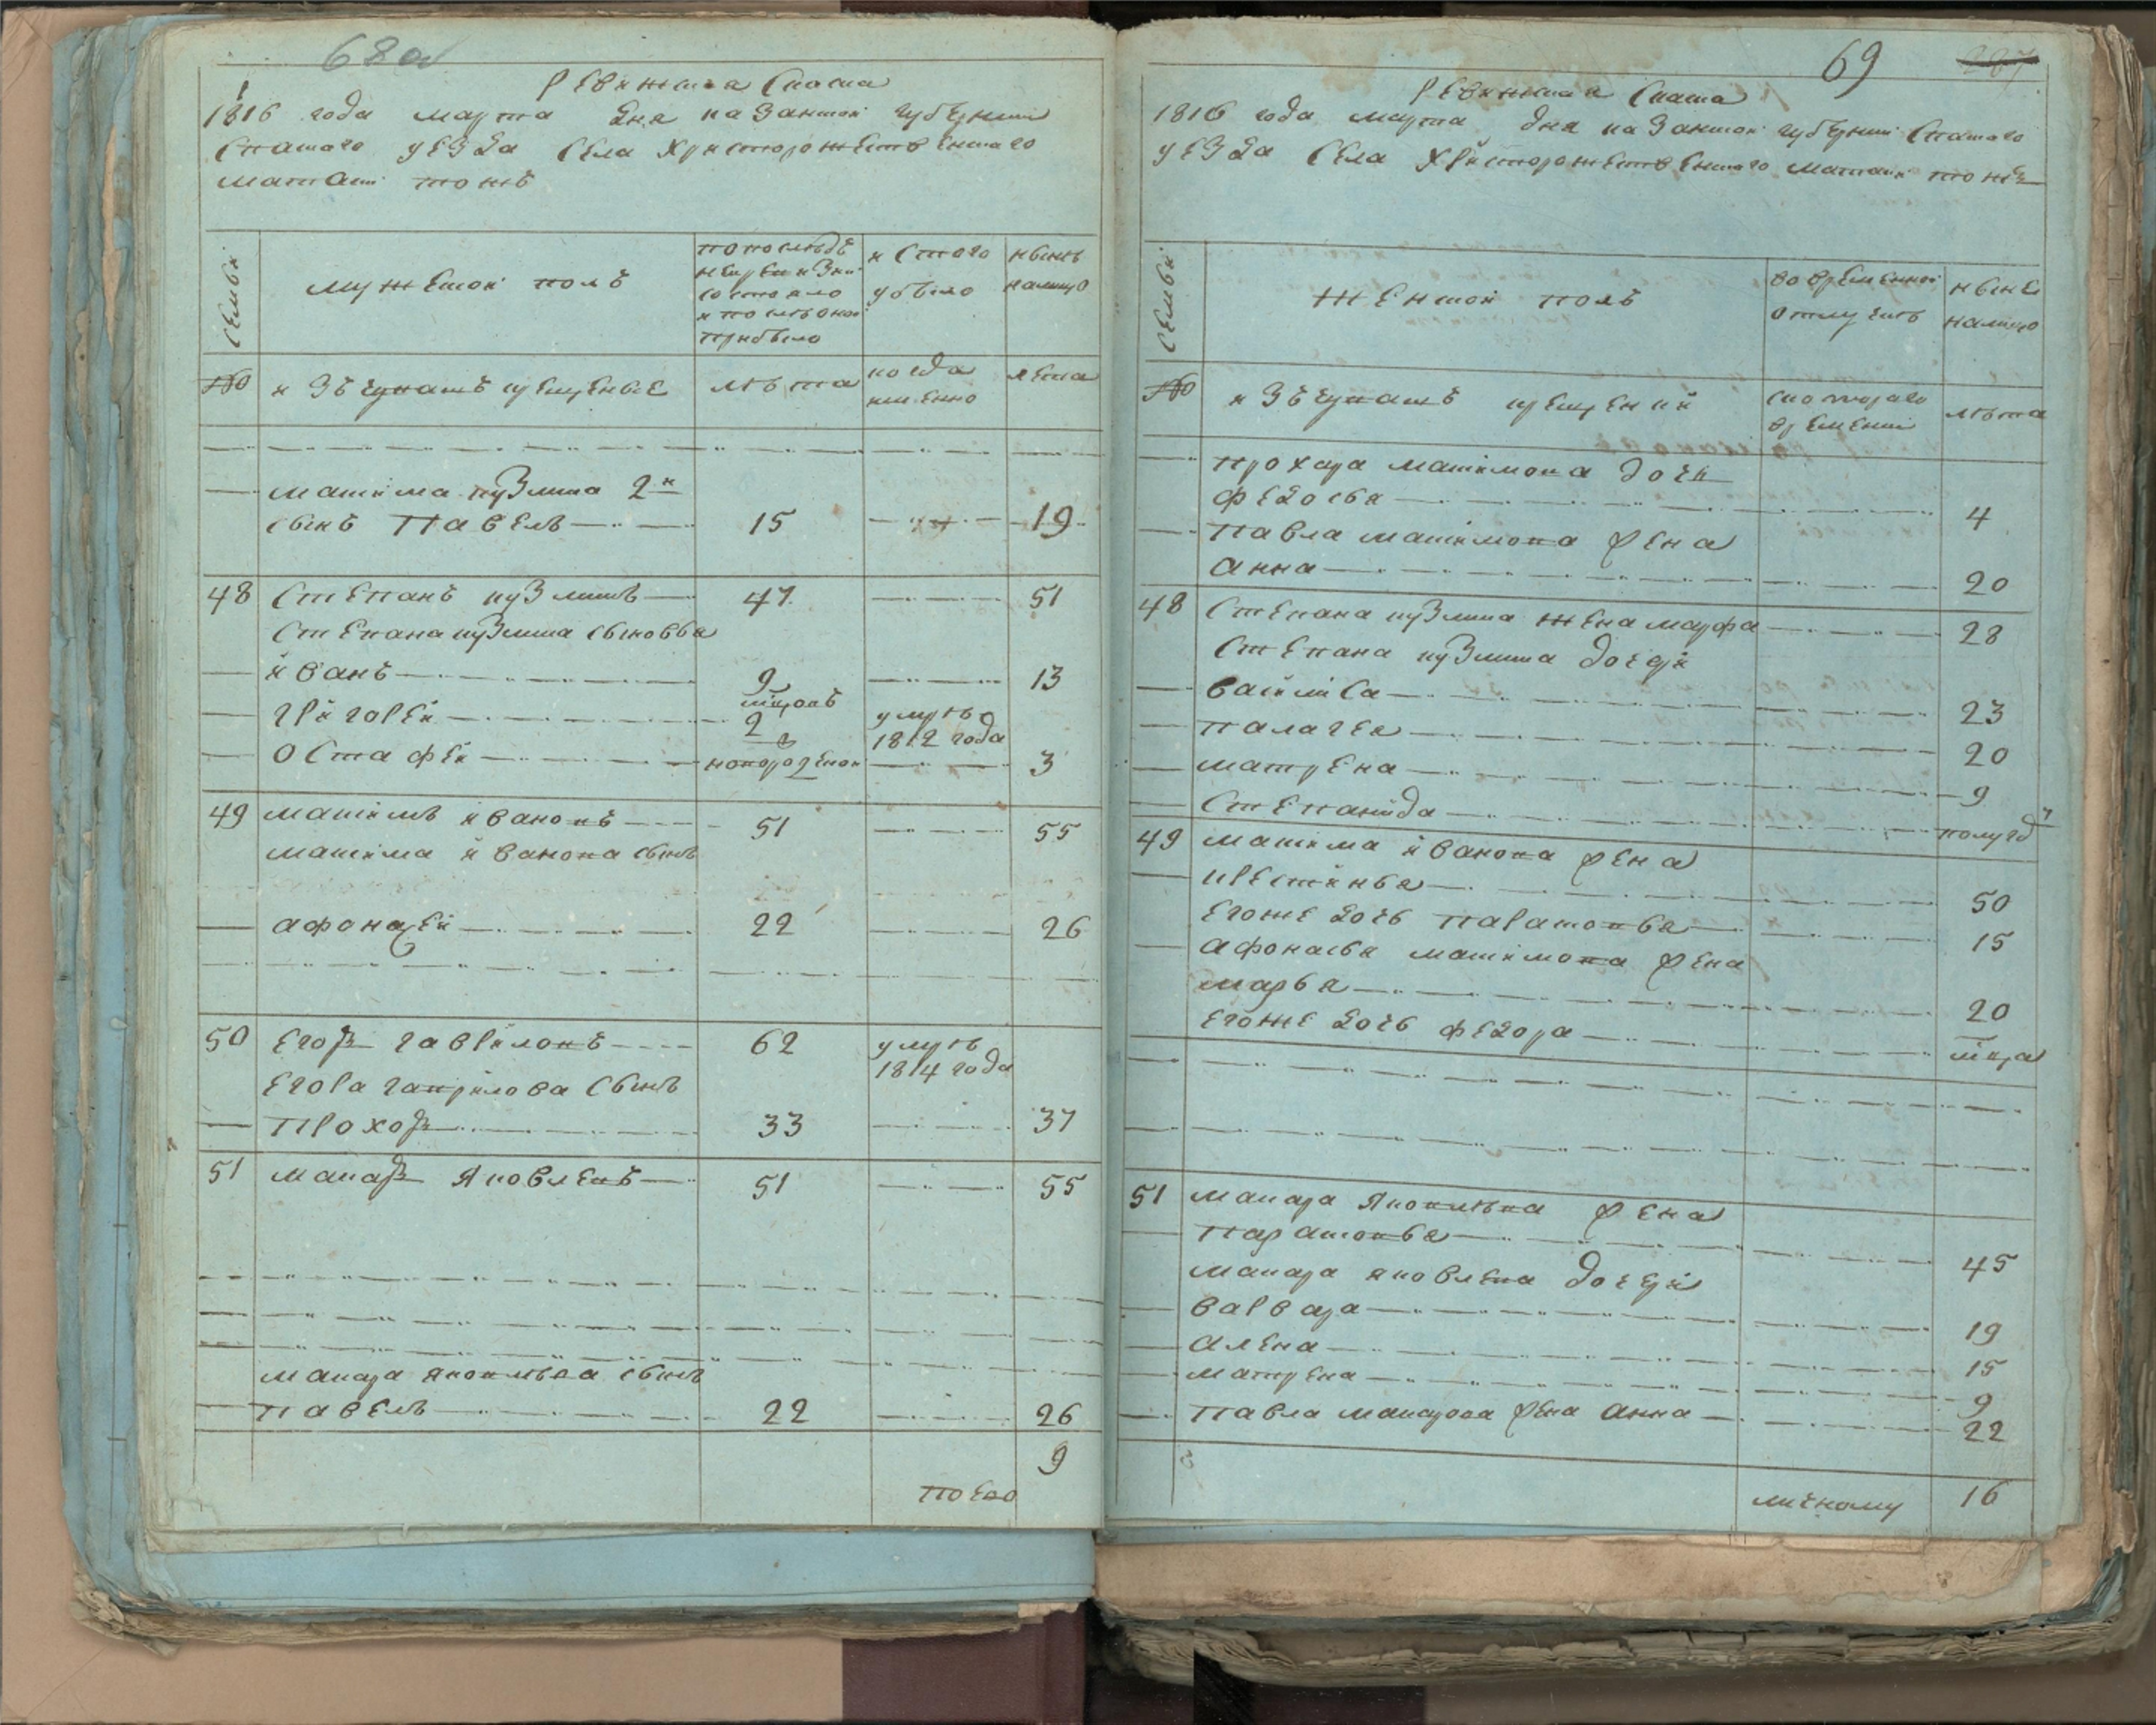 68об
Ревижская Скаска
1816 года марта дня казанской губернии
Спаского уезда села христорожественского
маткаси тожъ
семьи
мужеской полъ
по последъ
ней ревизии
состояло
и после оной
прибыло
и стого
убыло
нынъ
налицо
№
изъ чувашъ крещеные
лъта
когда
имянно
лета
максима кузмина 2й
сынъ Павелъ
15
19
48
Степанъ кузминъ
47
51
Степана кузмина сыновья
иванъ
9
13
григорей
мцовъ
2
умръ
1812 года
остафей
новорозеной
3
49
максимъ ивановъ
51
55
максима иванова сынъ
афонасей
22
26
50
Егоръ гавриловъ
62
умръ
1814 года
Егора гаврилова сынъ
Прохоръ
33
37
51
макаръ яковлевъ
51
55
макара яковлева сынъ
павелъ
22
26
9
69
Ревижская Скаска
1816 года марта дня казанской губернии Спаского
уезда села христорожественского маткаси тожъ
семьи
женской полъ
во временной
отлучкъ
ныне
налицо
№
изъ чувашъ крещении
скоторого
времении
лъта
прохора максимова дочь
федосья
4
павла максимова жена
анна
20
48
Степана кузмина жена марфа
28
Степана кузмина дочери
василиса
23
палагея
20
матрена
9
Степанида
полугод
49
максима иванова жена
крестинья
50
егоже дочь парасковья
15
афонасья максимова жена
марья
20
егоже дочь федора
мцa
51
макара яковлева жена
парасковья
45
макара яковлева дочери
варвара
19
алена
15
матрена
9
павла макарова жена анна
22
16